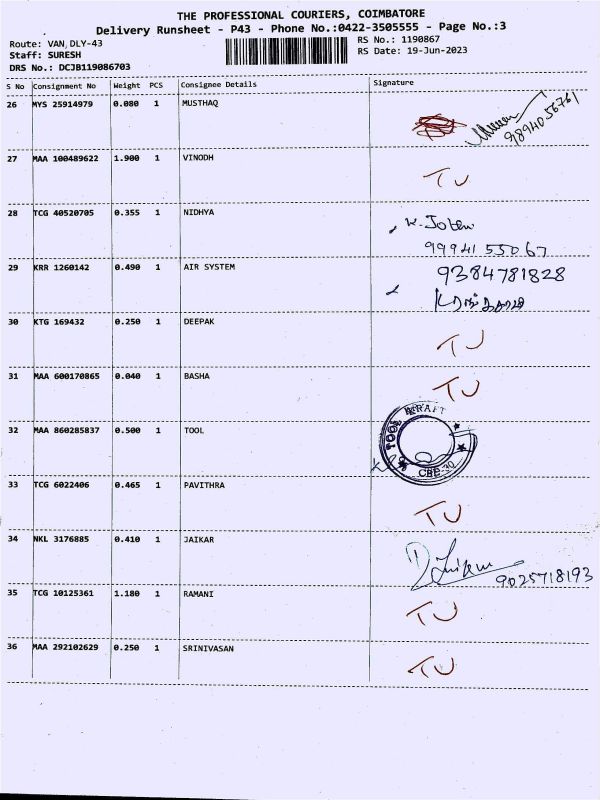 THE PROFESSIONAL COURIERS, COIMBATORE
Delivery Runsheet - P43 - Phone No.:0422-3505555 - Page No.:3
Route: VAN,DLY-43
RS No.: 1190867
Staff: SURESH
RS Date: 19-Jun-2023
DRS No.: DCJB119086703
S No Consignment No Weight PCS Consignee Details Signature
26 MYS 25914979 0.080 1 MUSTHAQ
9894056761
27 MAA 100489622 1.900 1 VINODH
TU
28 TCG 40520705 0.355 1 NIDHYA
9994155067
29 KRR 1260142 0.490 1 AIR SYSTEM
9384781828
30 KTG 169432 0.250 1 DEEPAK
TU
31 MAA 600170865 0.040 1 BASHA
TU
32 MAA 860285837 0.500 1 TOOL
TOOL KRAFT
CBE-30
33 TCG 6022406 0.465 1 PAVITHRA
TU
34 NKL 3176885 0.410 1 JAIKAR
9025718193
35 TCG 10125361 1.180 1 RAMANI
TU
36 MAA 292102629 0.250 1 SRINIVASAN
TU